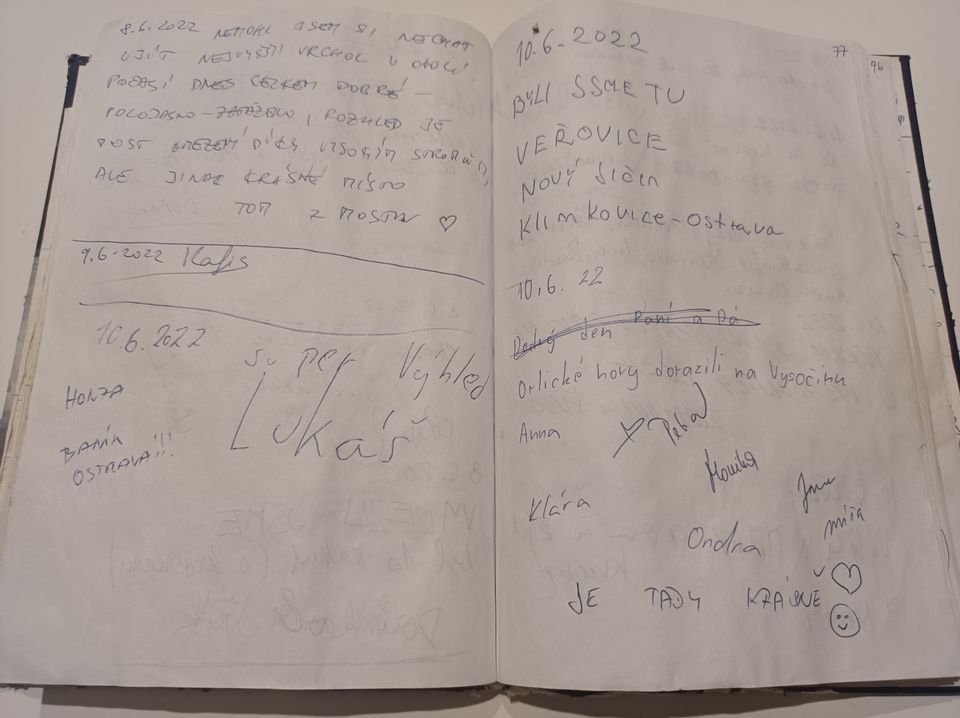 8.6.2022 NEMOHL JSEM SI NECHAT
UJÍT NEJVYŠŠÍ VRCHOL V OKOLÍ.
POČASÍ DNES CELKEM DOBRÉ -
POLOJASNO - ZATAŽENO, ROZHLED JE
DOST OMEZENÝ DÍKY VYSOKÝM STROMŮM,
ALE JINAK KRÁSNÉ MÍSTO
TOM Z MOSTU ♡
9.6.2022
10.6.2022
Super Výhled
HONZA
LUKáš
BANÍK
OSTRAVA!!!
77
96
10.6.2022
BYLI SSME TU
VEŘOVICE
NOVÝ JIČÍN
KLIMKOVICE - OSTRAVA
10.6.22
den Paní a Pá
Orlické hory dorazili na Vysočinu
Anna
Petra
Monika
Klára
míša
Ondra
JE TADY KRÁSNĚ ♡